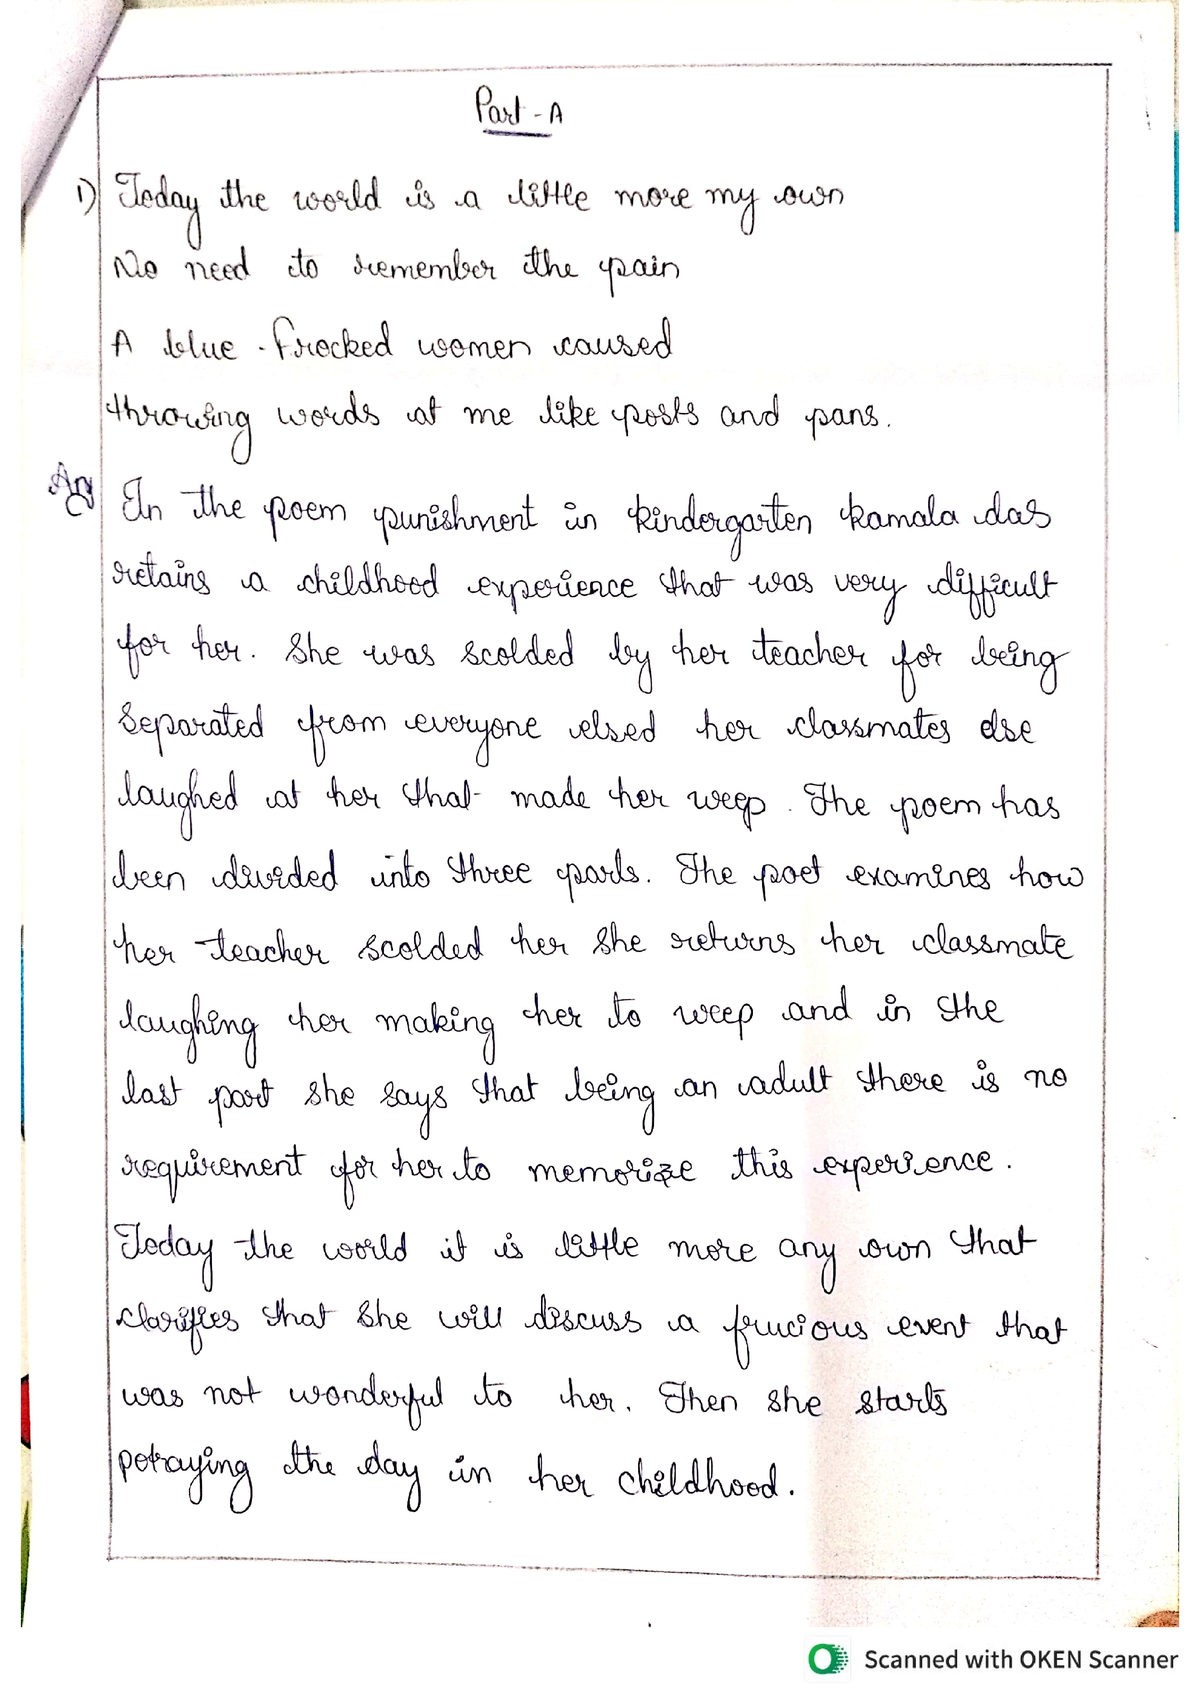 Part - A
1) Today the world is a little more my own
No need to remember the pain
A blue - frocked women caused
throwing words at me like posts and pans.
Ans In the poem punishment in kindergarten kamala das
retains a childhood experience that was very difficult
for her. She was scolded by her teacher for being
Separated from everyone elsed her classmates else
laughed at her that made her weep. The poem has
been divided into three parts. The poet examines how
her teacher scolded her she returns her classmate
laughing her making her to weep and in the
last part she says that being an adult there is no
requirement for her to memorize this experience.
Today the world it is little more any own that
clarifies that she will discuss a frucious event that
was not wonderful to her. Then she starts
potraying the day in her childhood.
Scanned with OKEN Scanner